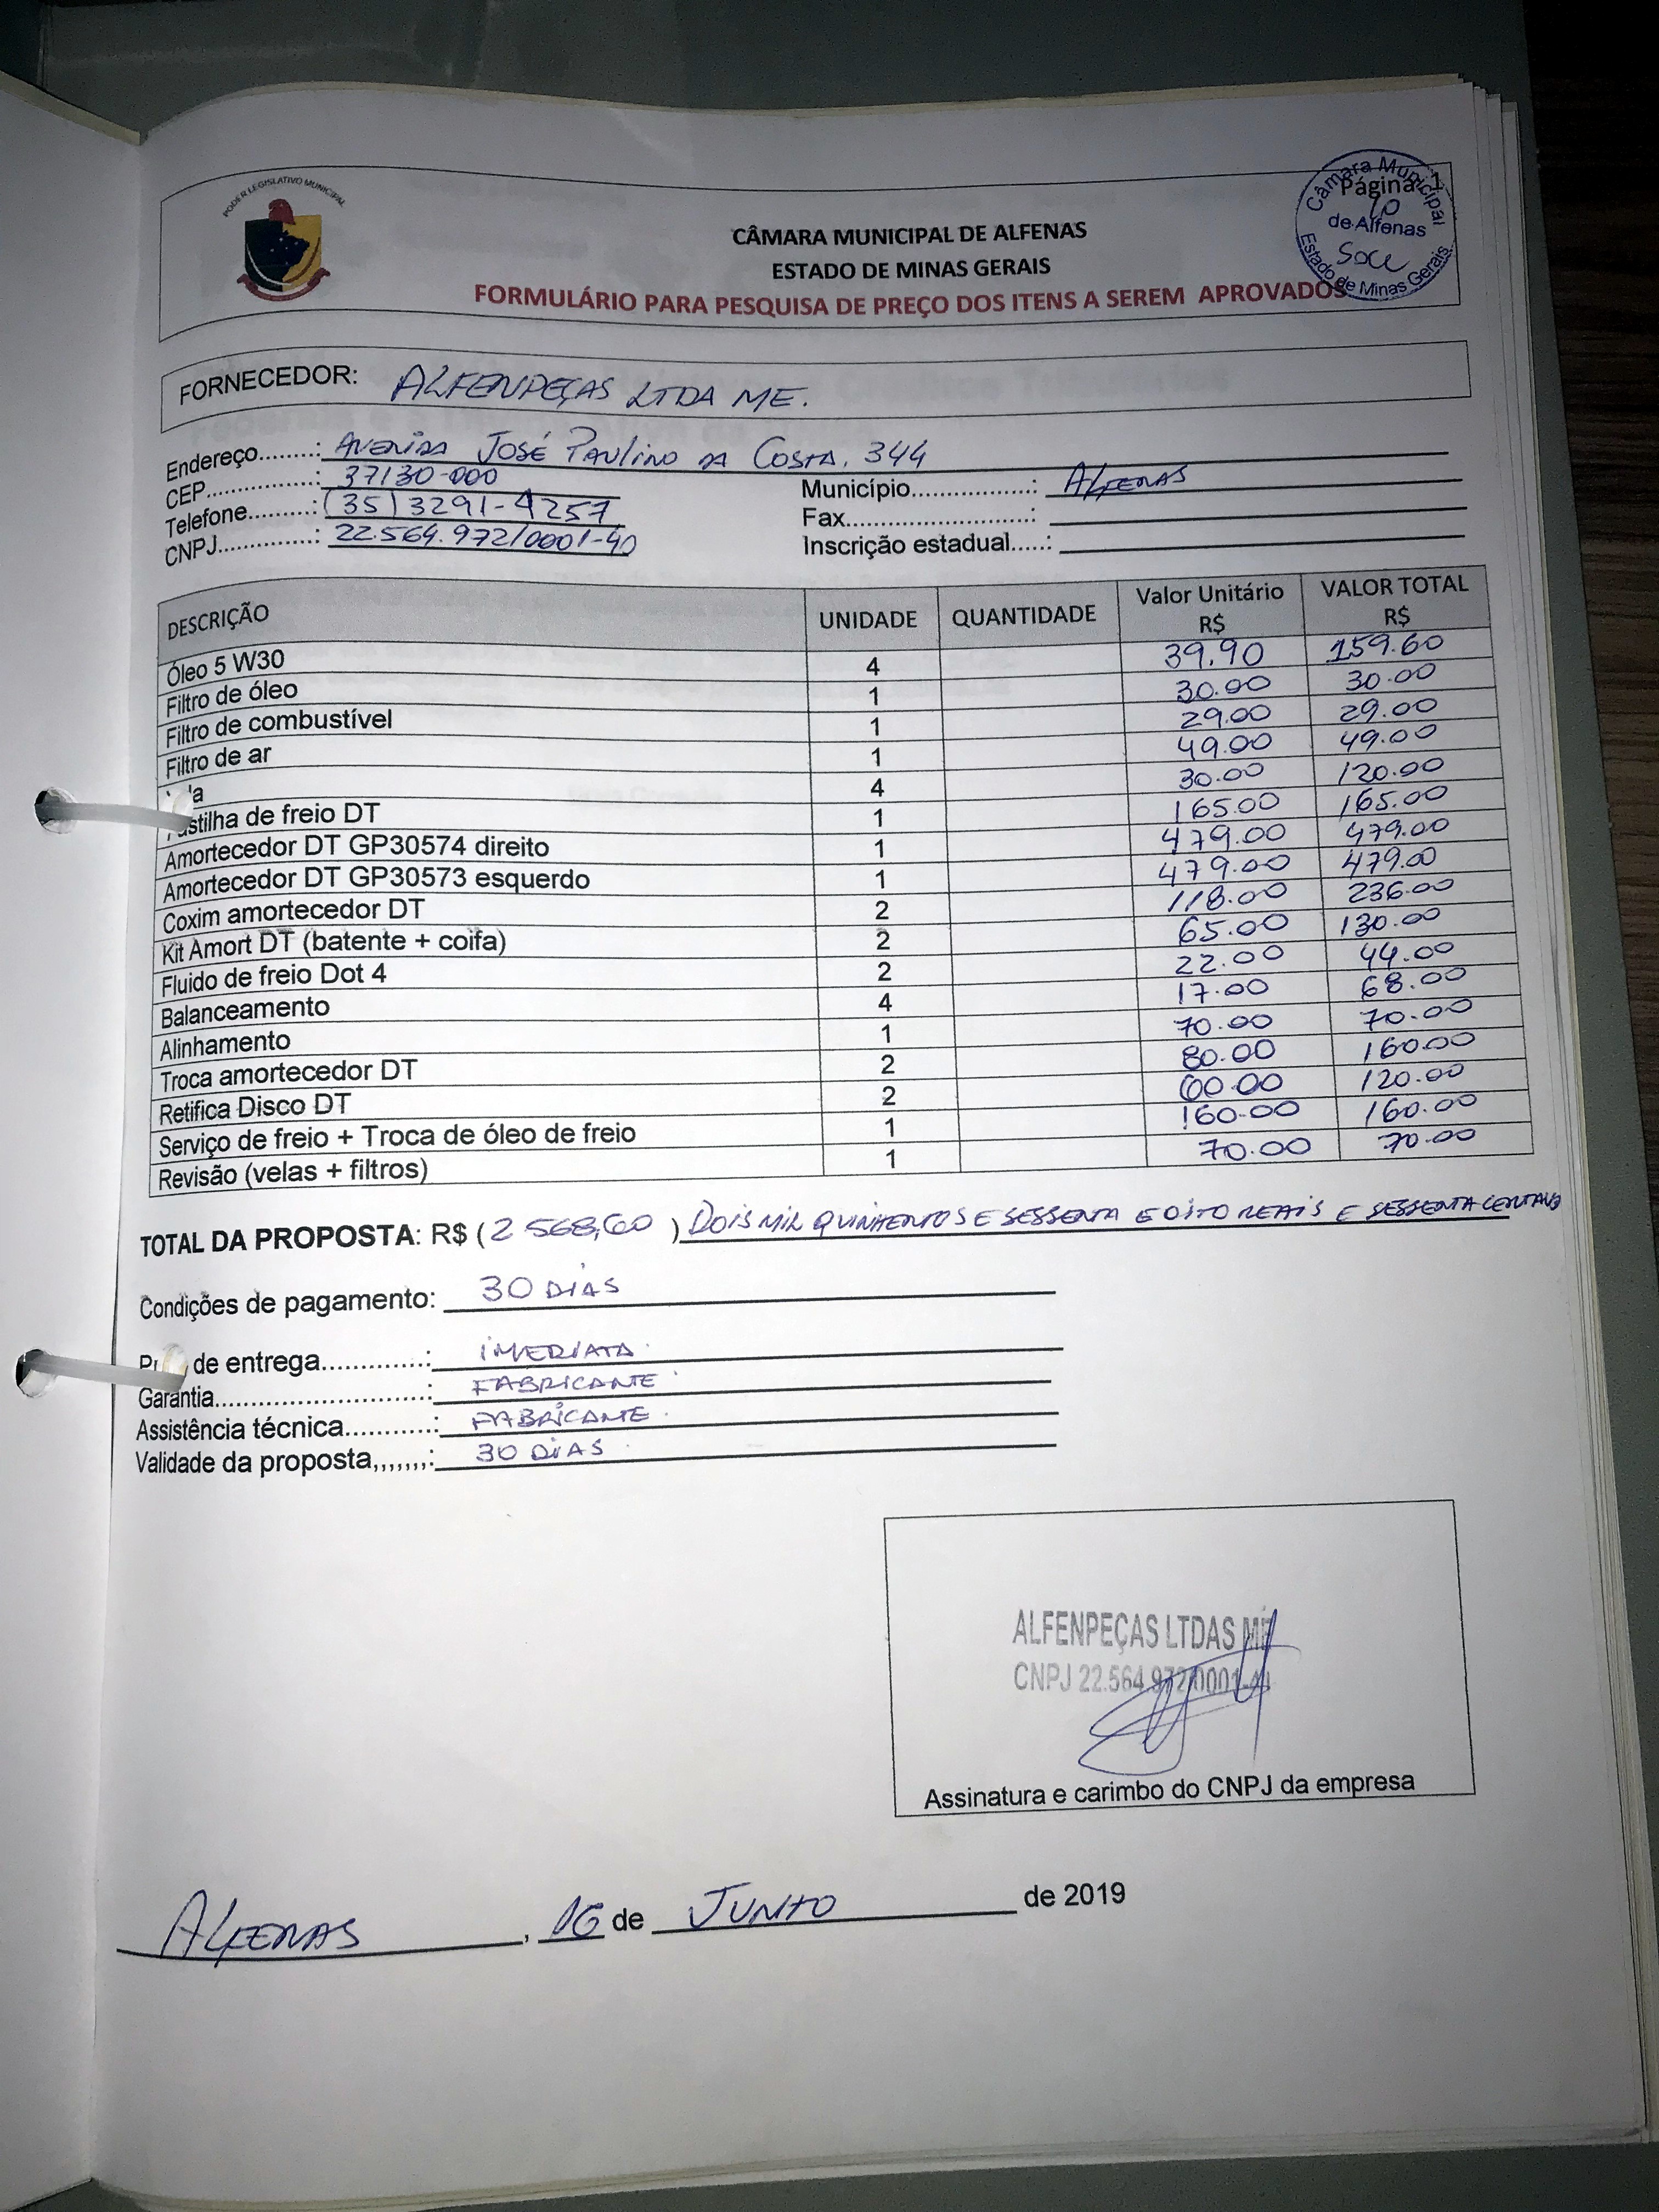 PODER LEGISLATIVO MUNICIPAL
CÂMARA MUNICIPAL DE ALFENAS
ESTADO DE MINAS GERAIS
FORMULÁRIO PARA PESQUISA DE PREÇO DOS ITENS A SEREM APROVADOS
Página: 1
Câmara Municipal
de Alfenas
Estado de Minas Gerais
FORNECEDOR: ALFENPEÇAS LTDA ME.
Endereço........: AVENIDA JOSÉ PAULINO DA COSTA, 344
CEP................: 37130-000 Município..................: ALFENAS
Telefone..........: (35) 3291-4257 Fax..............................:
CNPJ...............: 22.564.972/0001-40 Inscrição estadual.....:
DESCRIÇÃO UNIDADE QUANTIDADE Valor Unitário R$ VALOR TOTAL R$
Óleo 5 W30 4 39.90 159.60
Filtro de óleo 1 30.00 30.00
Filtro de combustível 1 29.00 29.00
Filtro de ar 1 49.00 49.00
la 4 30.00 120.00
astilha de freio DT 1 165.00 165.00
Amortecedor DT GP30574 direito 1 479.00 479.00
Amortecedor DT GP30573 esquerdo 1 479.00 479.00
Coxim amortecedor DT 2 118.00 236.00
Kit Amort DT (batente + coifa) 2 65.00 130.00
Fluido de freio Dot 4 2 22.00 44.00
Balanceamento 4 17.00 68.00
Alinhamento 1 70.00 70.00
Troca amortecedor DT 2 80.00 160.00
Retifica Disco DT 2 60.00 120.00
Serviço de freio + Troca de óleo de freio 1 160.00 160.00
Revisão (velas + filtros) 1 70.00 70.00
TOTAL DA PROPOSTA: R$ (2 568,60 ) DOIS MIL QUINHENTOS E SESSENTA E OITO REAIS E SESSENTA CENTAVO
Condições de pagamento: 30 DIAS
de entrega.............: IMEDIATA.
Garantia..........................: FABRICANTE.
Assistência técnica...........: FABRICANTE.
Validade da proposta,,,,,,,: 30 DIAS.
ALFENPEÇAS LTDAS ME
CNPJ 22.564.972/0001-40
Assinatura e carimbo do CNPJ da empresa
ALFENAS, 06 de JUNHO de 2019